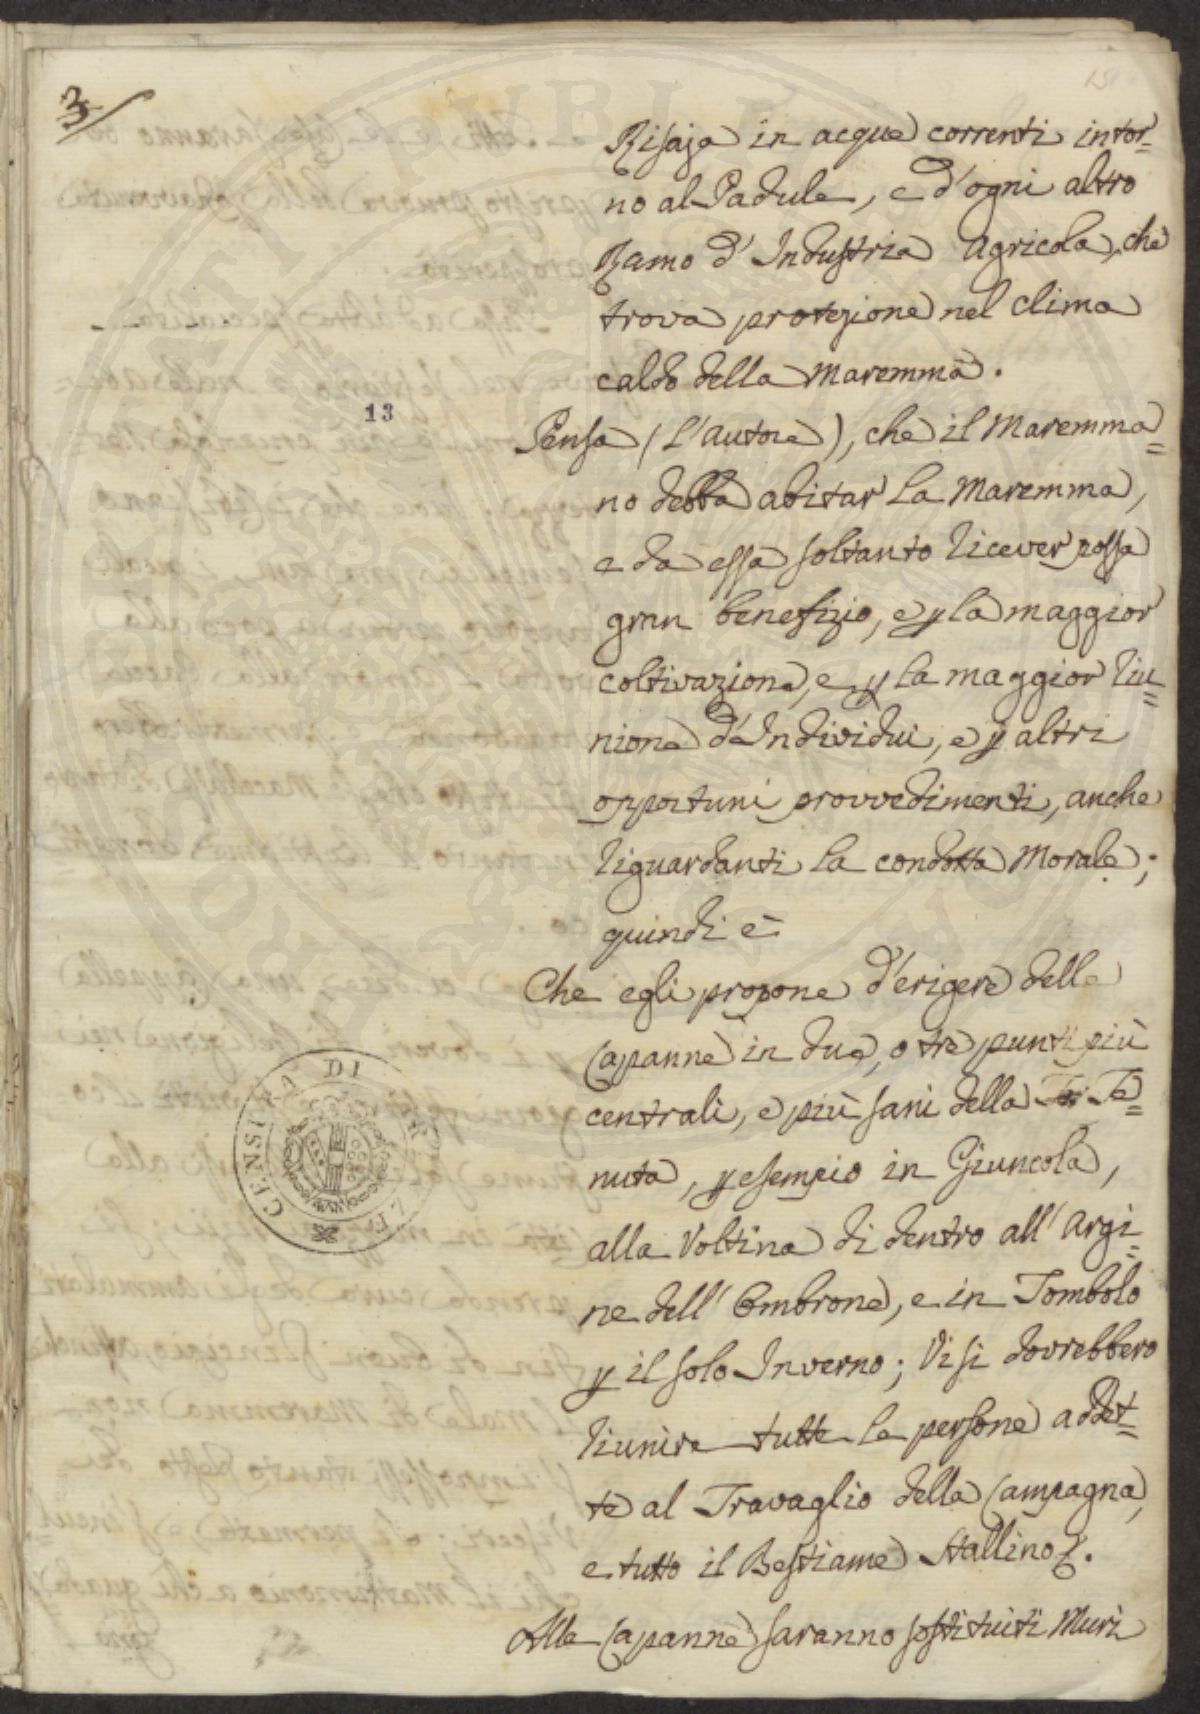 3
Risaja in acque correnti intor=
no al Padule, e d'ogni altro
Ramo d'Industria Agricola, che
trova protezione nel clima
caldo della Maremma.
13
Pensa (l'Autore), che il Maremma=
no debba abitar la Maremma,
e da essa soltanto ricever possa
gran benefizio, e p la maggior
coltivazione, e p la maggior riu=
nione d'Individui, e p altri
opportuni provvedimenti, anche
riguardanti la condotta Morale;
quindi è
Che egli propone d'erigere delle
Capanne in due, o tre punti più
centrali, e più sani della Te=
nuta, p esempio in Giuncola,
alla Voltina di dentro all'Argi=
ne dell'Ombrone, e in Tombolo
p il solo Inverno; Vi si dovrebbero
riunire tutte le persone addet=
te al Travaglio della Campagna,
e tutto il Bestiame Stallino.
CENSURA DI
Alle Capanne saranno sostituiti Muri